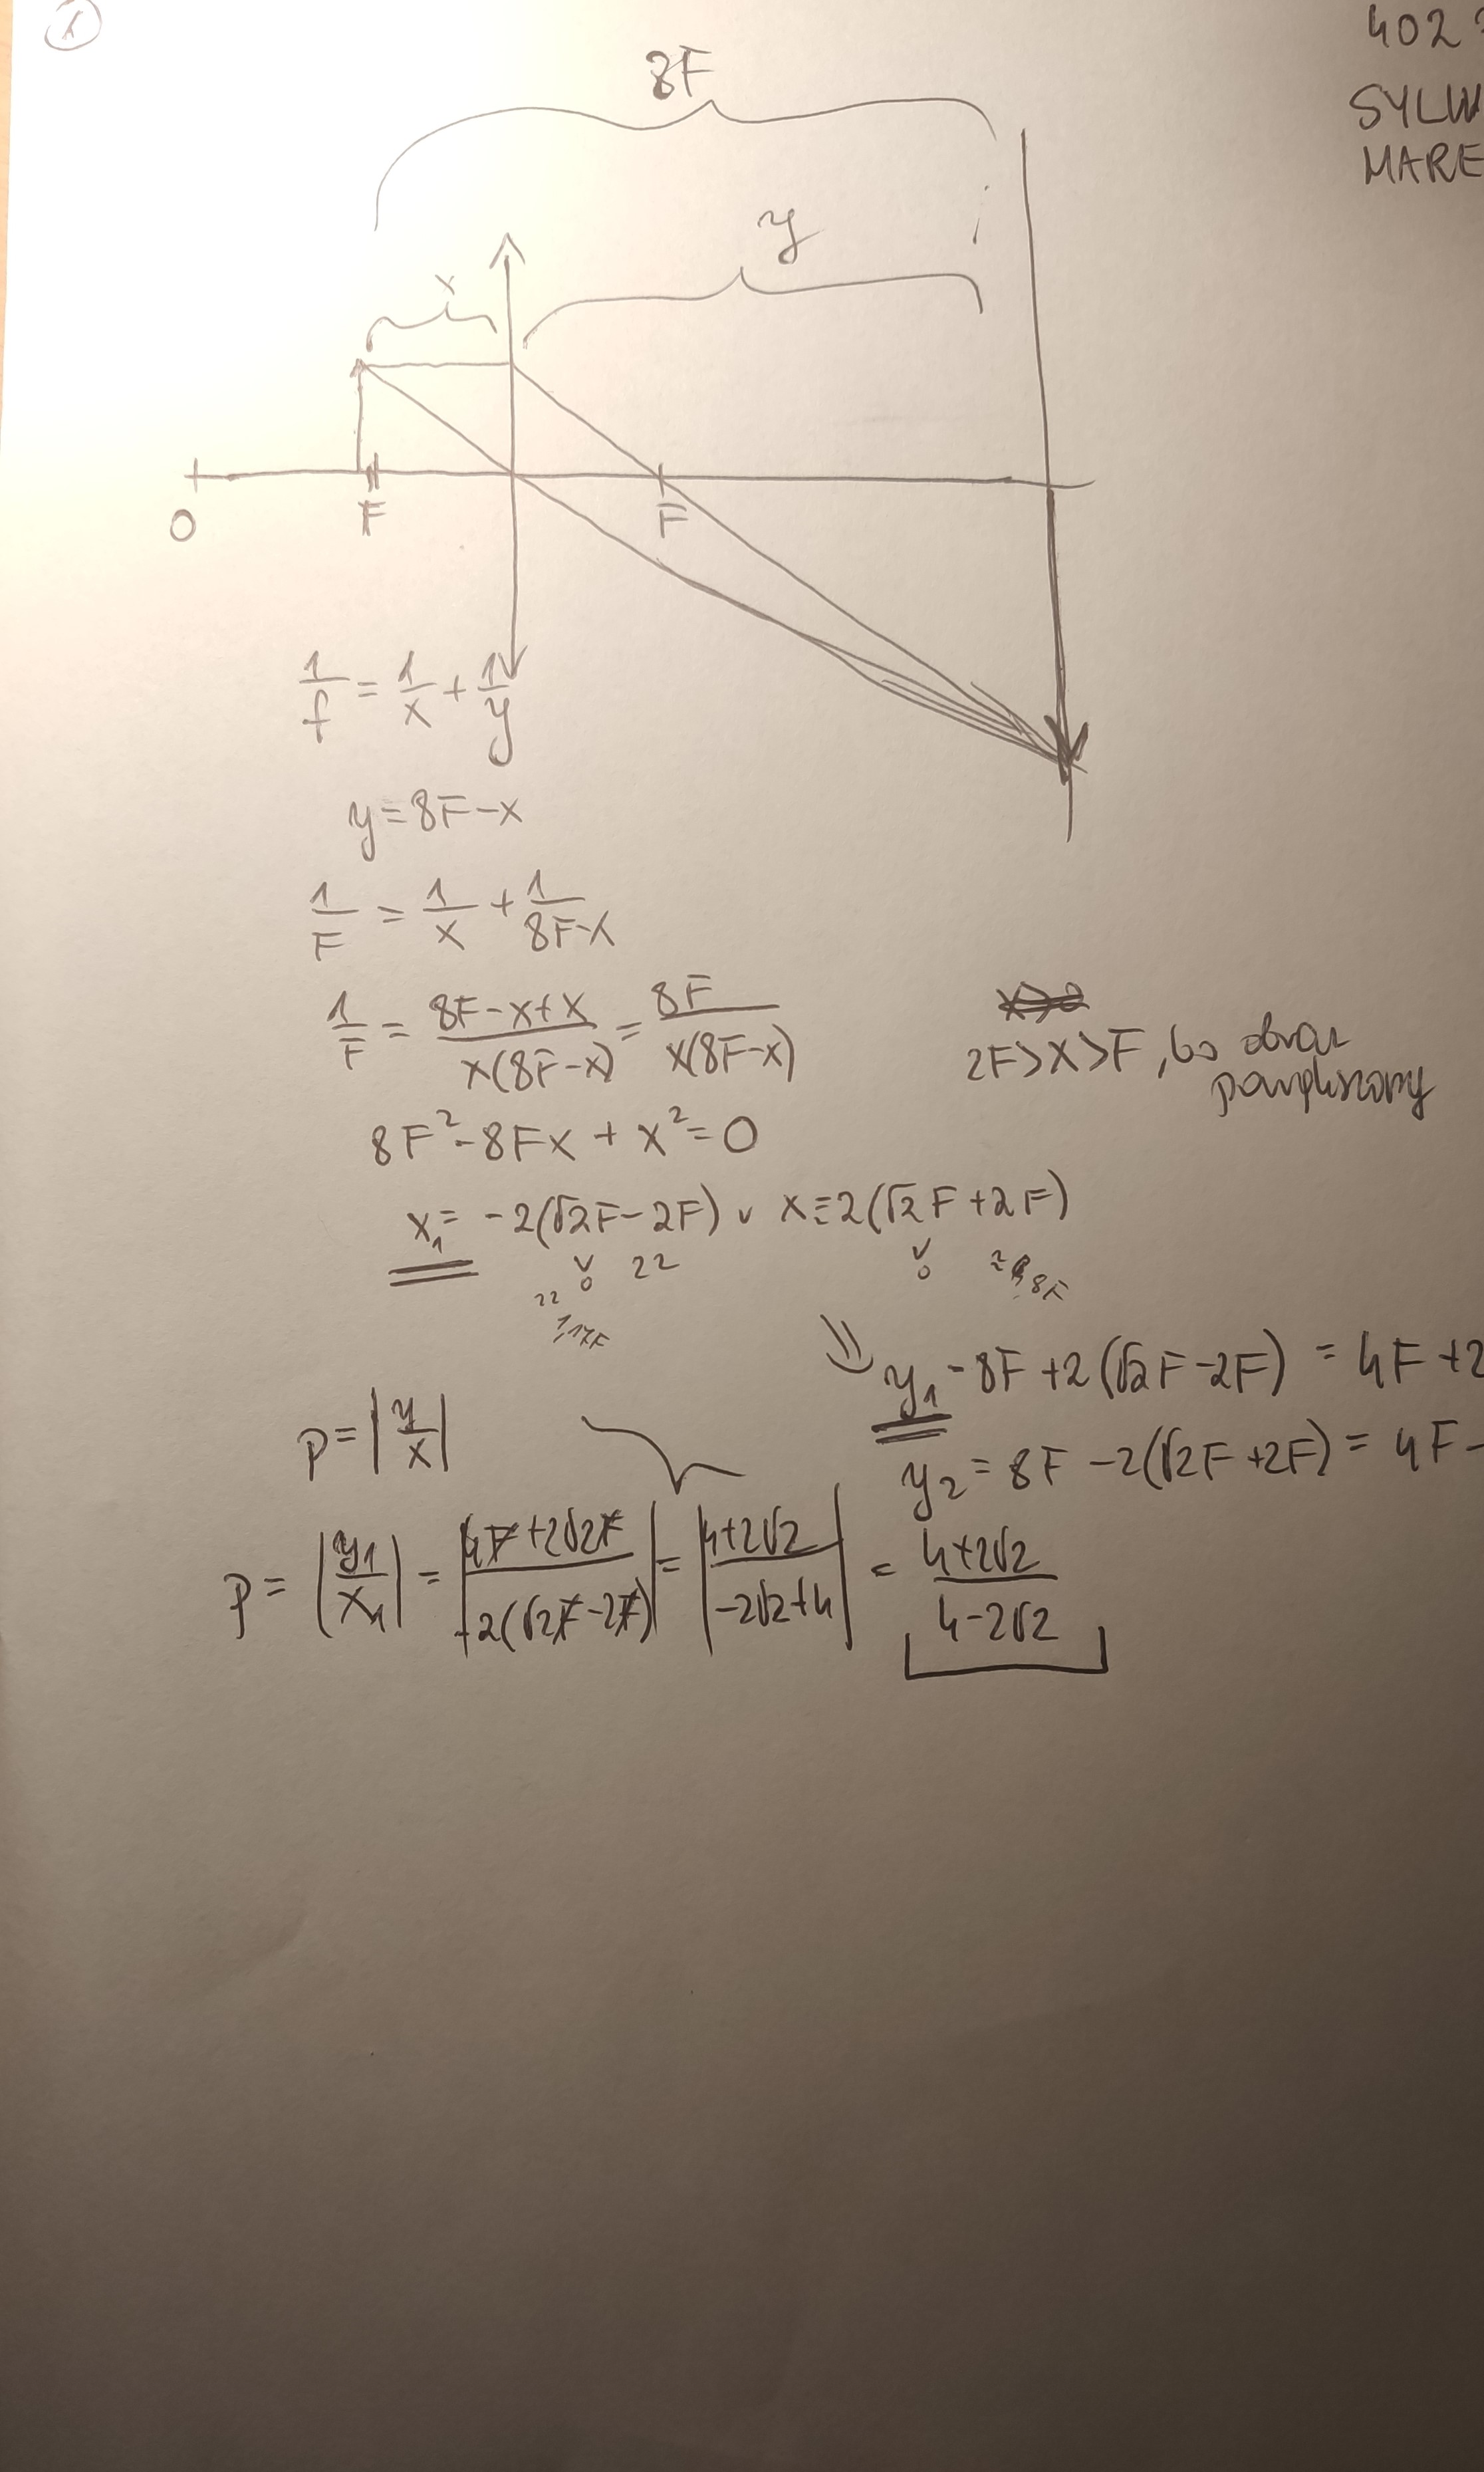 1
402
SYLW
MARE
8F
y
x
O F F
1/f = 1/x + 1/y
y = 8F - x
1/F = 1/x + 1/(8F-x)
1/F = (8F-x+x)/(x(8F-x)) = 8F/(x(8F-x))
2F>x>F, bo obraz
powiększony
8F² - 8Fx + x² = 0
x₁ = -2(√2F-2F) ∨ x = 2(√2F+2F)
∨ 22 ∨
0 0
22
1,17F
y₁ - 8F + 2(√2F-2F) = 4F + 2
p = |y/x|
y₂ = 8F - 2(√2F+2F) = 4F -
p = |y₁/x₁| = |(4F+2√2F)/(-2(√2F-2F))| = |(4+2√2)/(-2√2+4)| = (4+2√2)/(4-2√2)